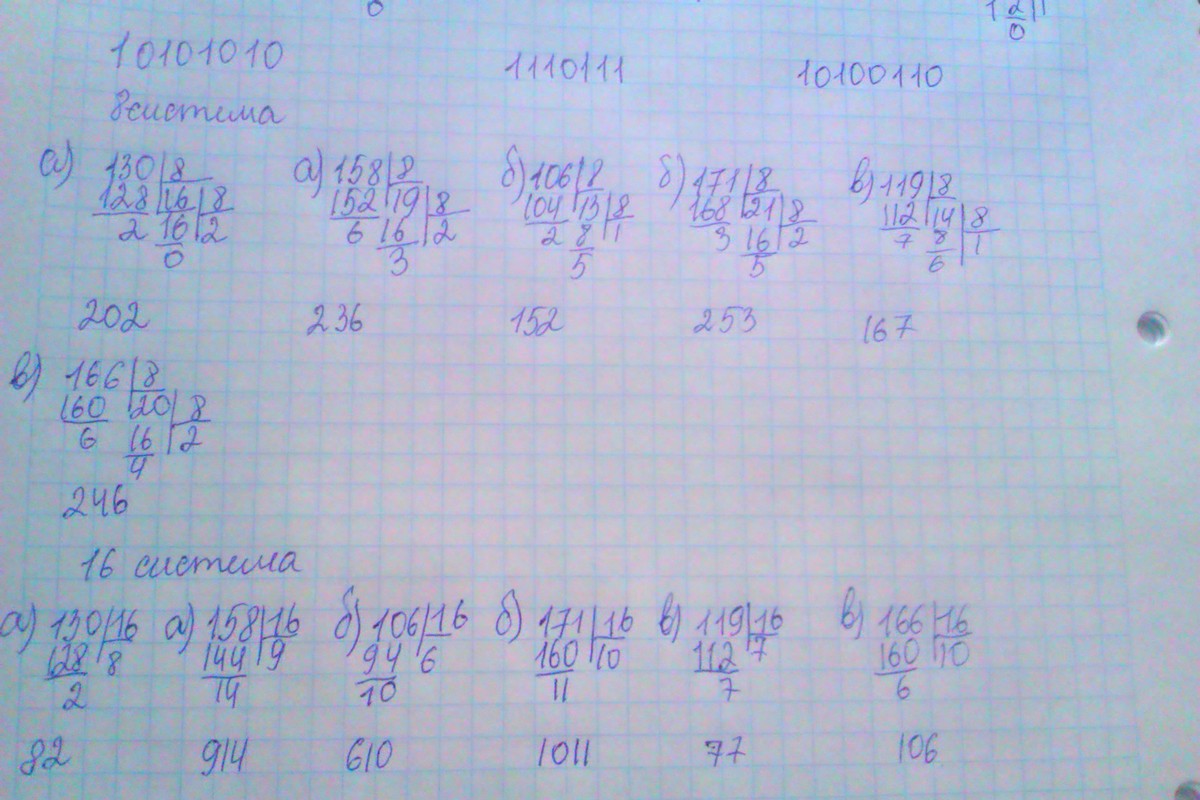 0 1 2 1
0
10101010 1110111 10100110
8 система
а) 130 8 а) 158 8 б) 106 8 б) 171 8 в) 119 8
128 16 8 152 19 8 104 13 8 168 21 8 112 14 8
2 16 2 6 16 2 2 8 1 3 16 2 7 8 1
0 3 5 5 6
202 236 152 253 167
в) 166 8
160 20 8
6 16 2
4
246
16 система
а) 130 16 а) 158 16 б) 106 16 б) 171 16 в) 119 16 в) 166 16
128 8 144 9 94 6 160 10 112 7 160 10
2 14 10 11 7 6
82 914 610 1011 77 106